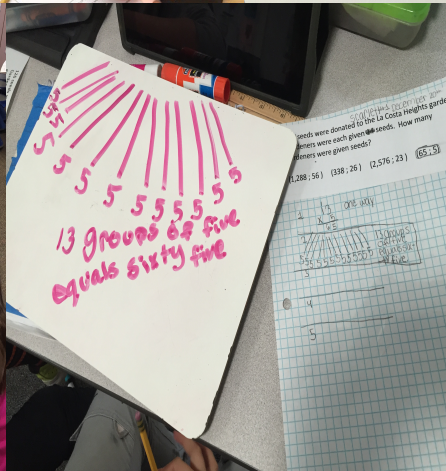 5
5
5
5
5 5 5 5 5 5 5 5 5
13 groups of five
equals sixty five
december
seeds were donated to the La Costa Heights garde
deners were each given seeds. How many
deners were given seeds?
(1,288; 56) (338; 26) (2,576; 23) (65; 5)
1 13 one way
x 5
65
2
13 groups
of five
3
4
5